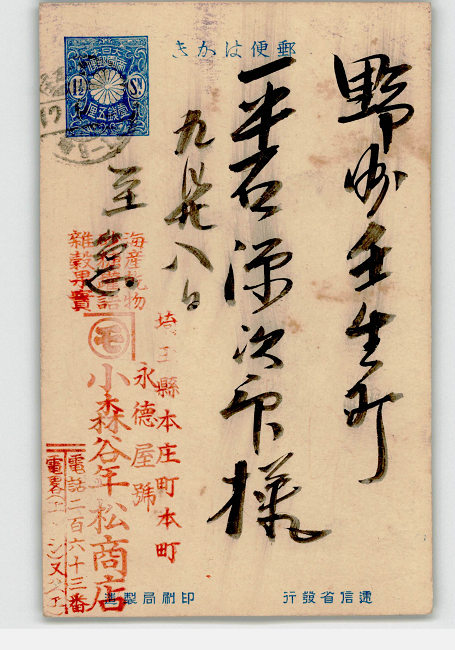 郵便はかき
野州壬生町
平石源次郎様
九月廿八日
至急
大日本帝國郵便
1½ Sn
壹錢五厘
海産乾物
雜穀果實
埼玉縣本庄町本町
永德屋號
モ
小森谷年松商店
電話二百六十三番
電畧
遞信省發行
印刷局製造